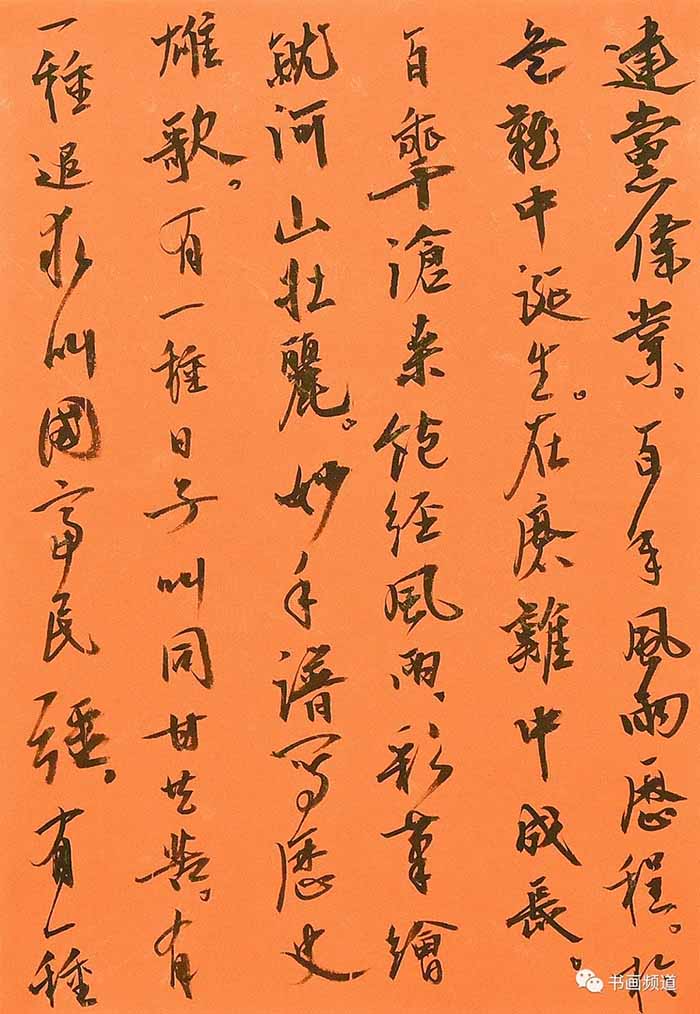 建黨偉業。百年風雨歷程。於
危難中誕生。在磨難中成長。
百年滄桑飽經風雨,彩筆繪
就河山壯麗。妙手譜寫歷史
雄歌。有一種日子叫同甘共苦。有
一種追求叫國富民強。有一種
书画频道